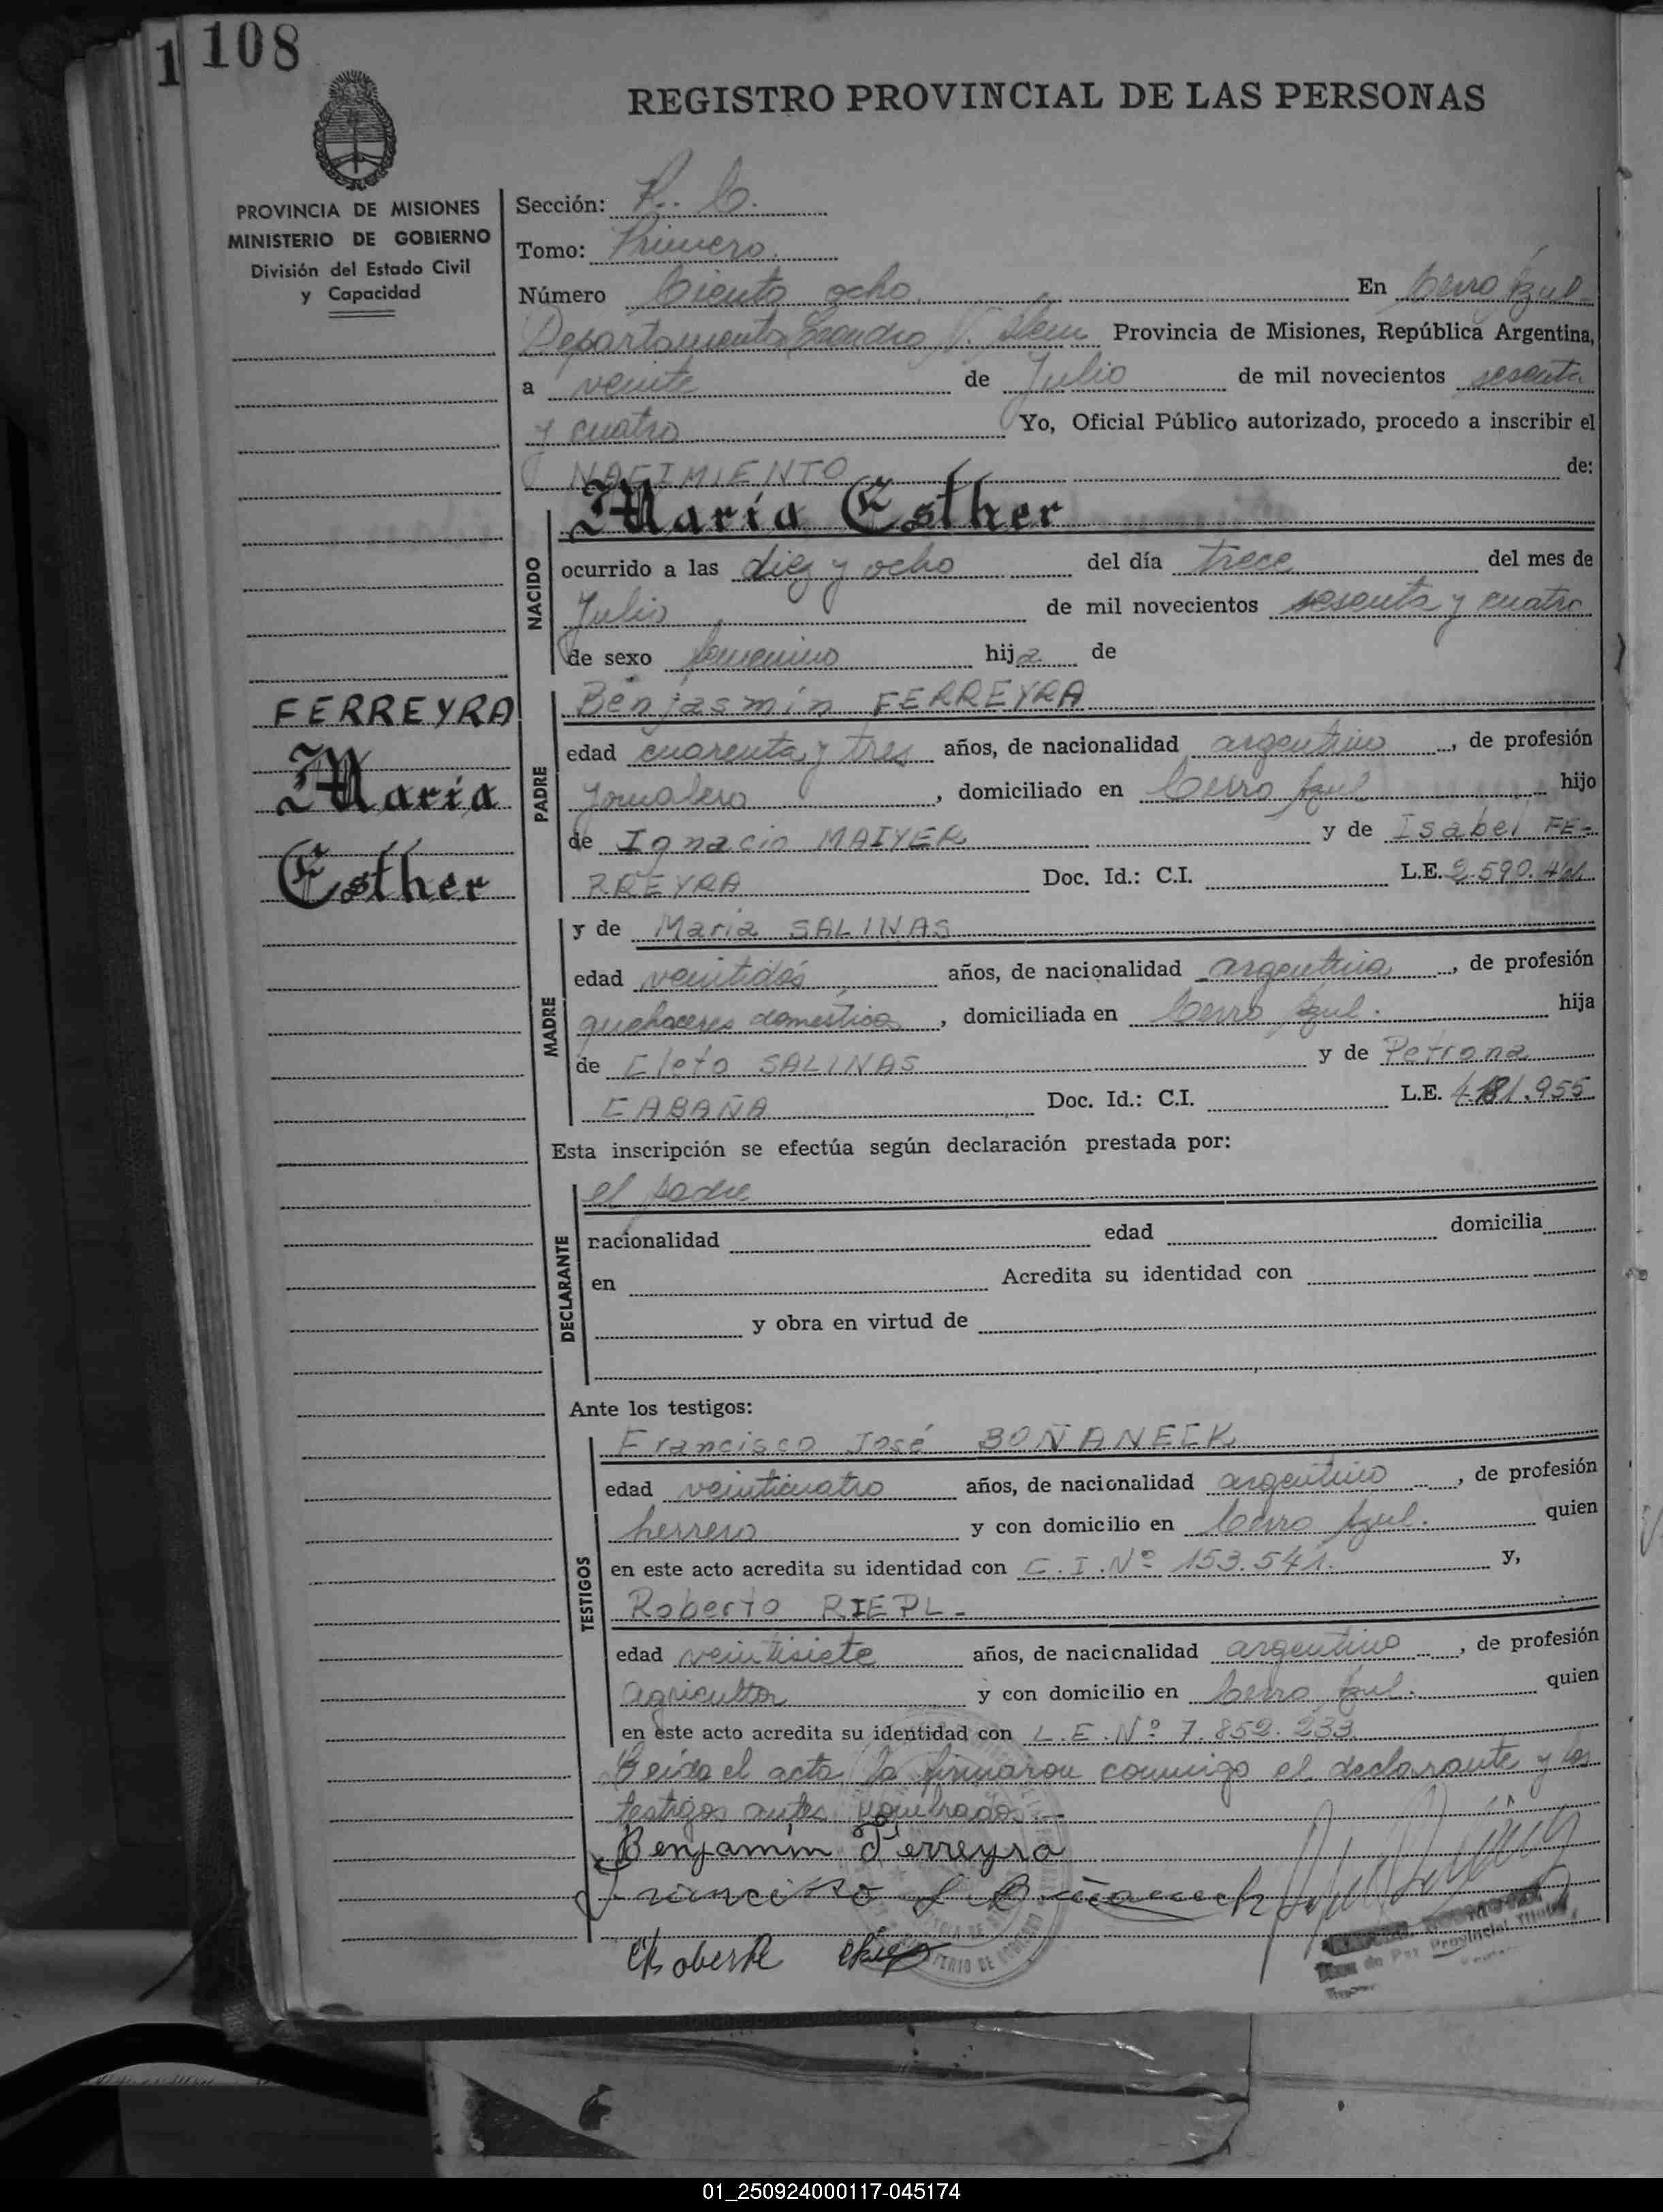 1 108
REGISTRO PROVINCIAL DE LAS PERSONAS
PROVINCIA DE MISIONES
MINISTERIO DE GOBIERNO
División del Estado Civil
y Capacidad
Sección: R. C.
Tomo: Primero.
Número Ciento ocho En Cerro Azul
Departamento Leandro N. Alem Provincia de Misiones, República Argentina,
a veinte de Julio de mil novecientos sesenta
y cuatro Yo, Oficial Público autorizado, procedo a inscribir el
NACIMIENTO de:
NACIDO
María Esther
ocurrido a las diez y ocho del día trece del mes de
Julio de mil novecientos sesenta y cuatro
de sexo femenino hija de
FERREYRA
María
Esther
PADRE
Benjasmín FERREYRA
edad cuarenta y tres años, de nacionalidad argentino, de profesión
Jornalero, domiciliado en Cerro Azul hijo
de Ignacio MAIYER y de Isabel FE-
RREYRA Doc. Id.: C.I. L.E. 2.590.
MADRE
y de María SALINAS
edad veintidós años, de nacionalidad argentina, de profesión
quehaceres domésticos, domiciliada en Cerro Azul. hija
de Cleto SALINAS y de Petrona
CABAÑA Doc. Id.: C.I. L.E. 4.181.955
Esta inscripción se efectúa según declaración prestada por:
DECLARANTE
el padre
nacionalidad edad domicilia
en Acredita su identidad con
y obra en virtud de
Ante los testigos:
TESTIGOS
Francisco José BOÑANECK
edad veinticuatro años, de nacionalidad argentino, de profesión
herrero y con domicilio en Cerro Azul. quien
en este acto acredita su identidad con C.I.Nº 153.541. y,
Roberto RIEPL-
edad veintisiete años, de nacionalidad argentino, de profesión
agricultor y con domicilio en Cerro Azul. quien
en este acto acredita su identidad con L.E.Nº 7.852.233.
Leída el acta, la firmaron conmigo el declarante y los
testigos antes nombrados.-
Benjamín Ferreyra
Francisco J. Boñaneck
Roberto
de Paz Provincial Titular
01_250924000117-045174